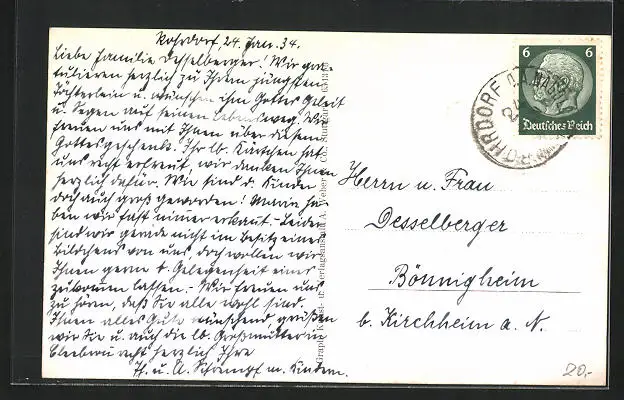 Rohrdorf, 24. Jan. 34.
Liebe Familie Desselberger. Wir gra-
tulieren herzlich zu Ihrem jüngsten
Töchterlein u. wünschen ihm Gottes Geleit
u. Segen auf seinen Lebensweg. Wir
freuen uns mit Ihnen über diesen
Gottesgeschenke. Ihr lb. Kärtchen hat
uns recht erfreut, wir danken Ihnen
herzlich dafür. Wie sind d. Kinder
doch auch groß geworden! Maria ha-
ben wir fast nimmer erkannt. - Leider
sind wir gerade nicht im Besitz eines
Bildchens von uns, doch wollen wir
Ihnen gerne b. Gelegenheit eines
zukommen lassen. - Wir freuen uns
zu hören, daß Sie alle wohl sind.
Ihnen alles Gute wünschend, grüßen
wir Sie u. auch die lb. Großmutter
recht herzlich Ihre
u. A. Schrempf m. Kindern.
Herrn u. Frau
Desselberger
Bönnigheim
b. Kirchheim a. N.
6 6
Deutsches Reich
ROHRDORF
Graph. Kunst- u. Verlagsanstalt A. Weber & Co. Stuttgart
20.-